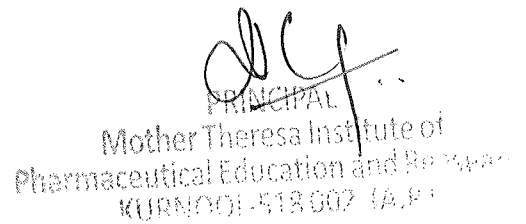 PRINCIPAL
Mother Theresa Institute of
Pharmaceutical Education and
KURNOOL-518 002 (A.P.)